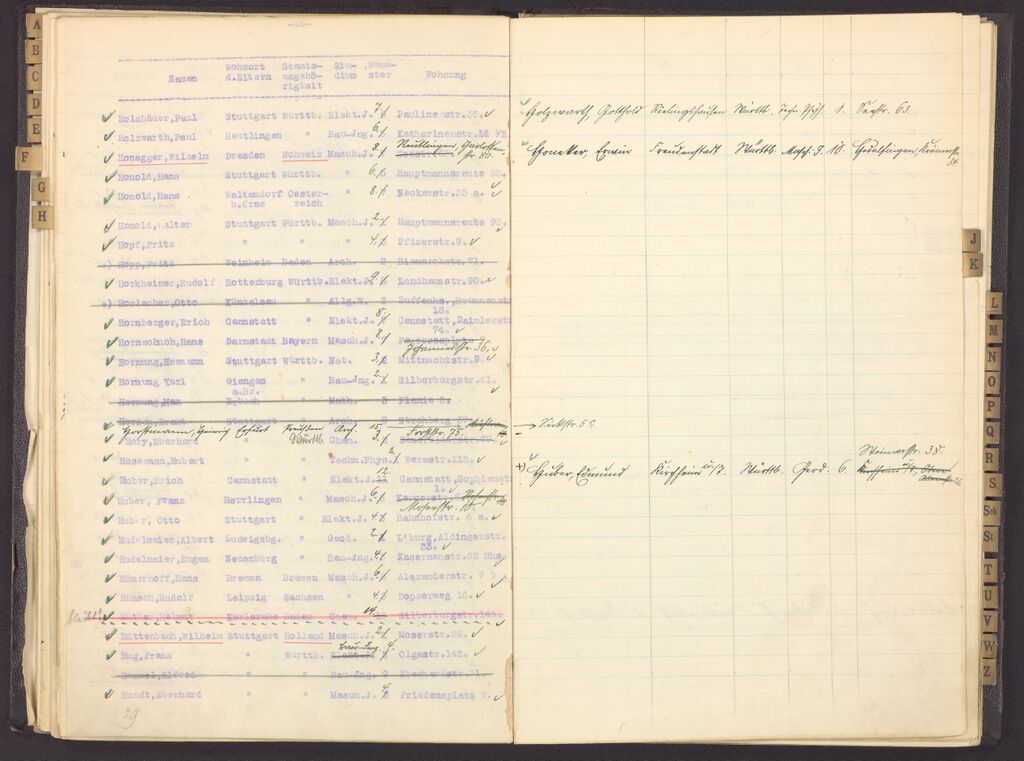 -46-
Namen Wohnort d.Eltern Staatsangehörigkeit Studium Semester Wohnung
Holzhäuer,Paul Stuttgart Württb. Elekt.J. 7 Paulinenstr.35.
Holzwarth,Paul Reutlingen " Bau-Jng. 6 Katharinenstr.
Honegger,Wilhelm Dresden Schweiz Masch.J. 8
Honold,Hans Stuttgart Württb. " 6 Hauptmannsreute 93.
Honold,Hans Waltendorf Oester- " 8 Neckarstr.35 a.
b.Graz reich
Honold,Walter Stuttgart Württb. Masch.J. 2 Hauptmannsreute 93.
Hopf,Fritz " " " 4 Pfizerstr.9.
Hopp,Fritz Weinheim Baden Arch. 2 Bismarckstr.71.
Horkheimer,Rudolf Rottenburg Württb. Elekt.J. 9 Landhausstr.90.
Horlacher,Otto Künzelsau " Allg.W. 3 Zuffenhs.,Brunnenstr
18.
Hornberger,Erich Cannstatt " Elekt.J. 8 Cannstatt,Daimlerstr
74.
Hornschuch,Hans Darmstadt Bayern Masch.J. Feuerseeplatz
Johannesstr. 36.
Hornung,Hermann Stuttgart Württb. Nat. 3 Mittnachtstr.9.
Hornung Karl Giengen " Bau-Jng. 2 Silberburgstr.41.
a.Br.
Hornung,Max Erbach " Math. 3 Planie 5.
Stuttgart " Arch.
Horstmann, Heinrich Erfurt Preußen Arch. 15.
Hory,Eberhard " Württb. Chem. 3
Hosemann,Hubert " " Techn.Phys. 2 Werastr.118.
Huber,Erich Cannstatt " Elekt.J. 12 Cannstatt,Sophienstr
1.
Huber, Franz Herrlingen " Masch.J. 6
Moserstr. 10.
Huber, Otto Stuttgart " Elekt.J. 4 Bahnhofstr. 6 a.
Hudelmaier,Albert Ludwigsbg. " Geod. 2 L'burg,Aldingerstr.
33.
Hudelmaier,Eugen Neuenbürg " Bau-Jng. 4 Kasernenstr.65 Hhs.
Hünerhoff,Hans Bremen Bremen Masch.J. 6 Alexanderstr. 7 b
Hünsch,Rudolf Leipzig Sachsen " 4 Bopserweg 16.
bleibt! Hüther,Helmut Karlsruhe Baden Chem. 14 Silberburgstr.145.
Hüttenbach,Wilhelm Stuttgart Holland Masch.J. 2 Moserstr.26.
Hug,Franz " Württb. Elekt.J. 4 Olgastr.142.
Hummel,Alfred " " Bau-Jng. 9 Eberhardstr.31.
Hundt,Eberhard " " Masch.J. 4 Friedensplatz 7.
29
Holzwarth, Gotthold Kielingshausen Württb. Techn. Phys. 1. Seestr. 63.
Honeker, Erwin Freudenstadt Württb. Masch. J. 10.
→ Parkstr. 5c
+) Huber, Edmund Kirchheim u/T. Württb. Geod. 6. Steinwaystr. 38.
A
B
C
D
E
F
G
H
J
K
L
M
N
O
P
Q
R
S
Sch
St
T
U
V
W
Z